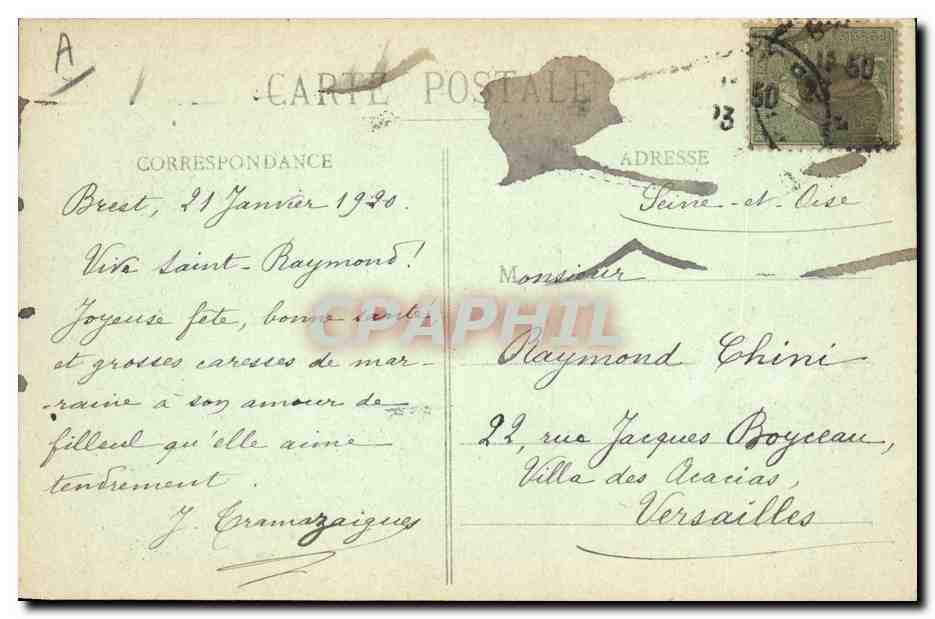 A
CARTE POSTALE
CORRESPONDANCE
Brest, 21 Janvier 1920.
Vive Saint-Raymond!
Joyeuse fête, bonne santé,
et grosses caresses de mar-
-raine à son amour de
filleul qu'elle aime
tendrement.
J. Tramazaigues
ADRESSE
Seine-et-Oise
Monsieur
Raymond Chini
22, rue Jacques Boyceau,
Villa des Acacias,
Versailles
CPAPHIL